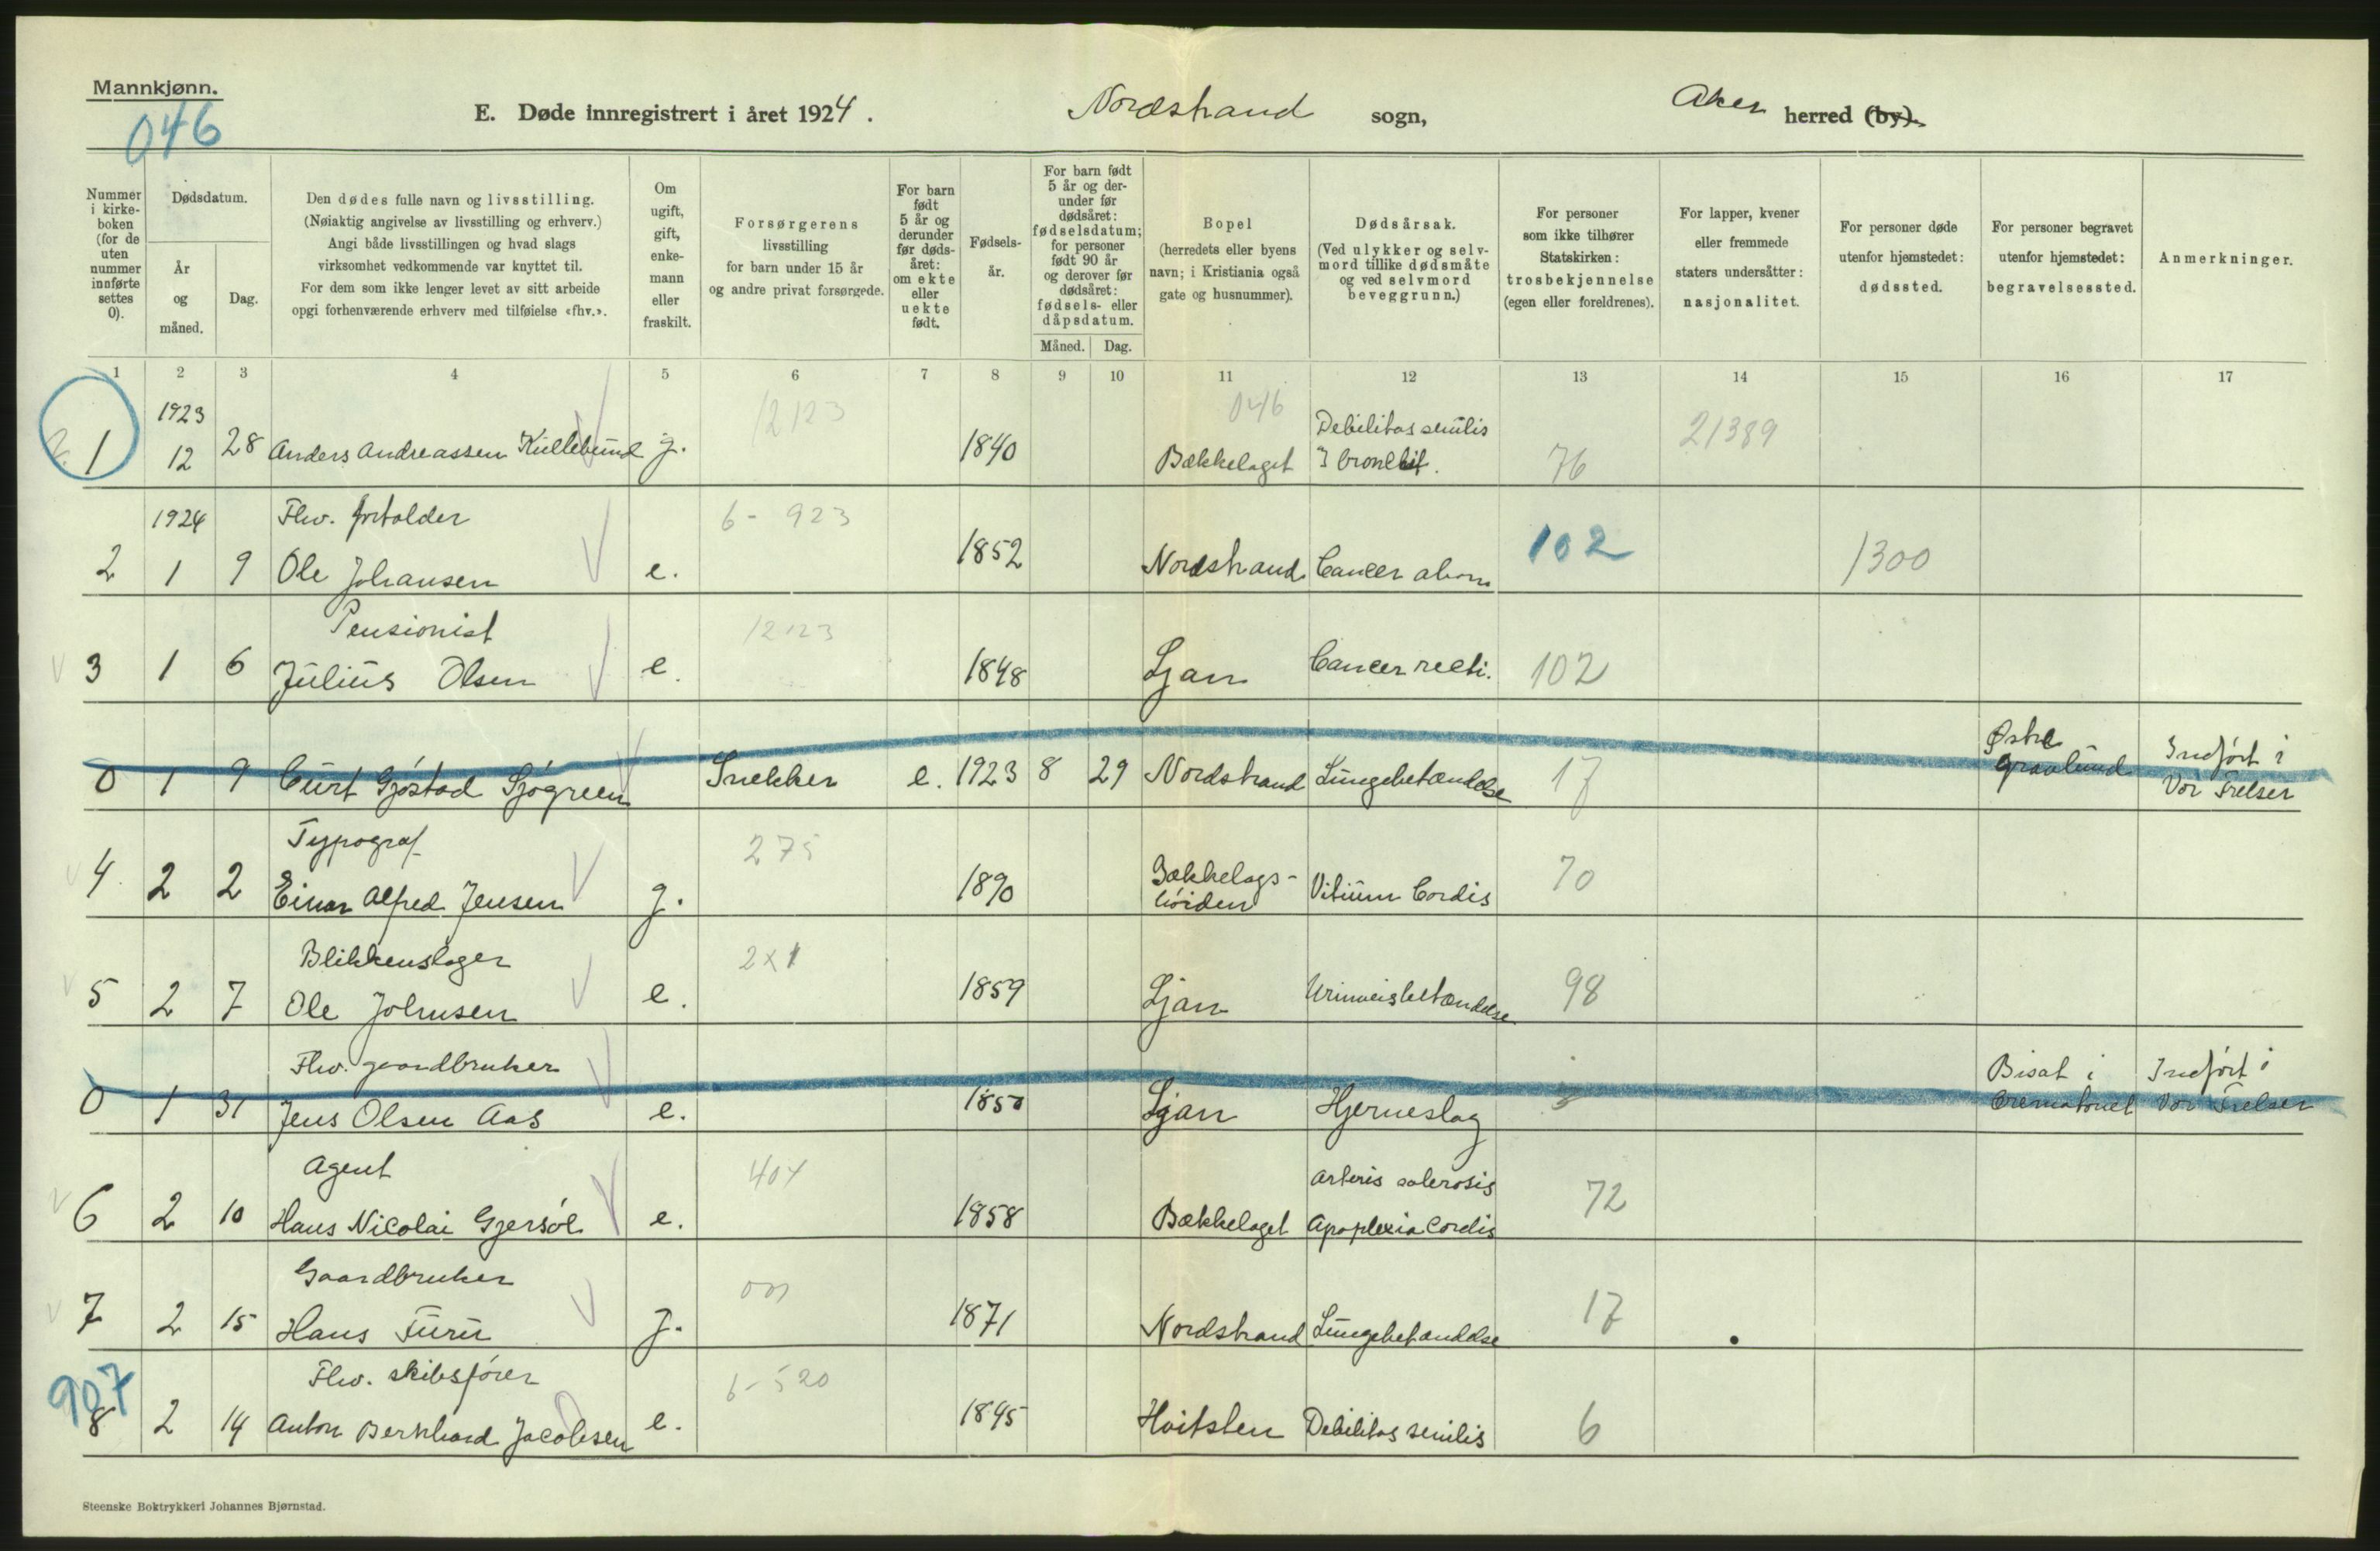 Mannkjønn.
046
E. Døde innregistrert i året 1924. Nordstrand sogn, Aker herred (by).
Nummer i kirke-boken (for de uten nummer innførte settes 0).
Dødsdatum.
År og måned.
Dag.
Den dødes fulle navn og livsstilling.
(Nøiaktig angivelse av livsstilling og erhverv.)
Angi både livsstillingen og hvad slags
virksomhet vedkommende var knyttet til.
For dem som ikke lenger levet av sitt arbeide
opgi forhenværende erhverv med tilføielse «fhv.».
Om ugift, gift, enke-mann eller fraskilt.
Forsørgerens
livsstilling
for barn under 15 år
og andre privat forsørgede.
For barn født 5 år og derunder før døds-året: om ekte eller uekte født.
Fødsels-år.
For barn født 5 år og der-under før dødsåret: fødselsdatum; for personer født 90 år og derover før dødsåret: fødsels- eller dåpsdatum.
Måned. Dag.
Bopel
(herredets eller byens
navn; i Kristiania også
gate og husnummer).
Dødsårsak.
(Ved ulykker og selv-
mord tillike dødsmåte
og ved selvmord
beveggrunn.)
For personer
som ikke tilhører
Statskirken:
trosbekjennelse
(egen eller foreldrenes).
For lapper, kvener
eller fremmede
staters undersåtter:
nasjonalitet.
For personer døde
utenfor hjemstedet:
dødssted.
For personer begravet
utenfor hjemstedet:
begravelsessted.
Anmerkninger.
1 2 3 4 5 6 7 8 9 10 11 12 13 14 15 16 17
1923 12123 046 Debilitas senilis 21389
1 12 28 Anders Andreassen Kullebund g. 1840 Bækkelaget 76
1924 Fhv. 6- 923
2 1 9 Ole Johansen e. 1852 Nordstrand Cancer abom 102 1300
Pensionist 12123
3 1 6 Julius Olsen e. 1848 Ljan Cancer recti. 102
Østre Indført i
0 1 9 Curt Gjøstad Sjøgreen Snekker e. 1923 8 29 Nordstrand Lungebetændelse 17 Gravlund Vor Frelser
Typograf 275 Bækkelags-
4 2 2 Einar Alfred Jensen g. 1890 høiden Vitium Cordis 70
Blikkenslager 2x1
5 2 7 Ole Johnsen e. 1859 Ljan Urinveisbetændelse 98
Fhv. gaardbruker Bisat i Indført i
0 1 31 Jens Olsen Aas e. 1850 Ljan Hjerneslag Crematoriet Vor Frelser
Agent 404 Arteris sclerosis
6 2 10 Hans Nicolai Gjersøe e. 1858 Bækkelaget Apoplexia Cordis 72
Gaardbruker
7 2 15 Hans Furu g. 1871 Nordstrand Lungebetændelse 17
907 Fhv. skibsfører 6-520
8 2 14 Anton Bernhard Jacobsen e. 1845 Hvitsten Debilitas senilis 6
Steenske Boktrykkeri Johannes Bjørnstad.